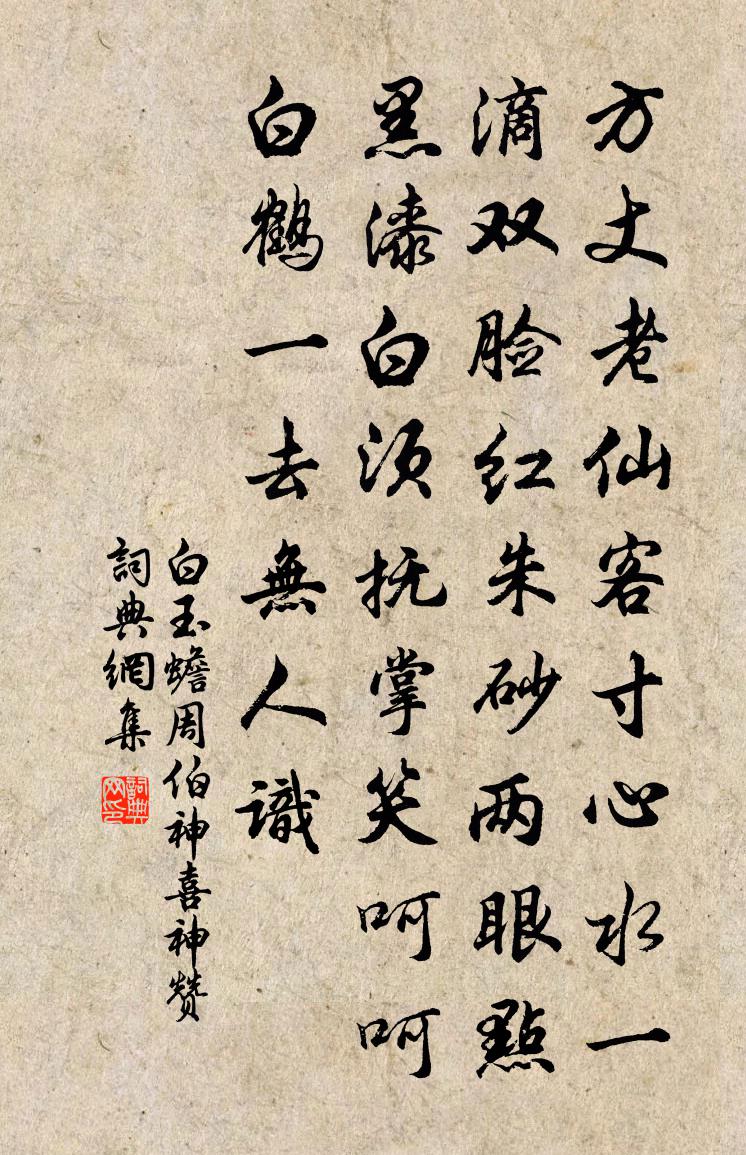 方丈老仙客寸心水一
滴双脸红朱砂两眼點
黑漆白须抚掌笑呵呵
白鶴一去無人識
白玉蟾周伯神喜神赞
詞典網集
詞典网印